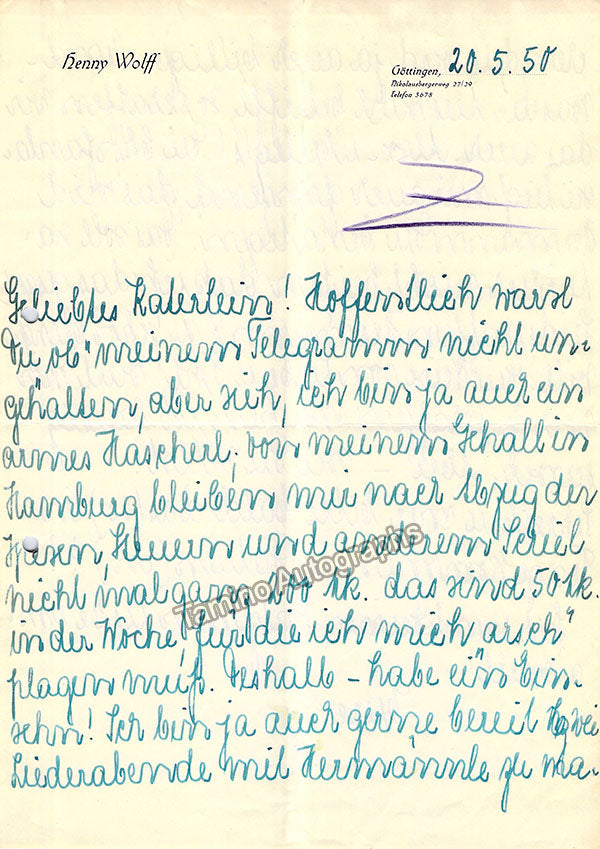 Henny Wolff
Göttingen, 20.5.50
Nikolausbergerweg 27/29
Telefon 3678
Geliebtes Katerlein! Hoffentlich warst
Du ob" meinem Telegramm nicht un-
gehalten, aber sieh, ich bin ja auch ein
armes Hascherl, von meinem Gehalt in
Hamburg bleiben mir nach Abzug der
Spesen, Steuern und anderem
nicht mal ganz 200 Mk. das sind 50 Mk.
in der Woche, für die ich mich "arsch"
plagen muß. Deshalb – habe ein Ein-
sehn! Ich bin ja auch gerne bereit zwei
Liederabende mit Hermännle zu ma-
TaminoAutographs